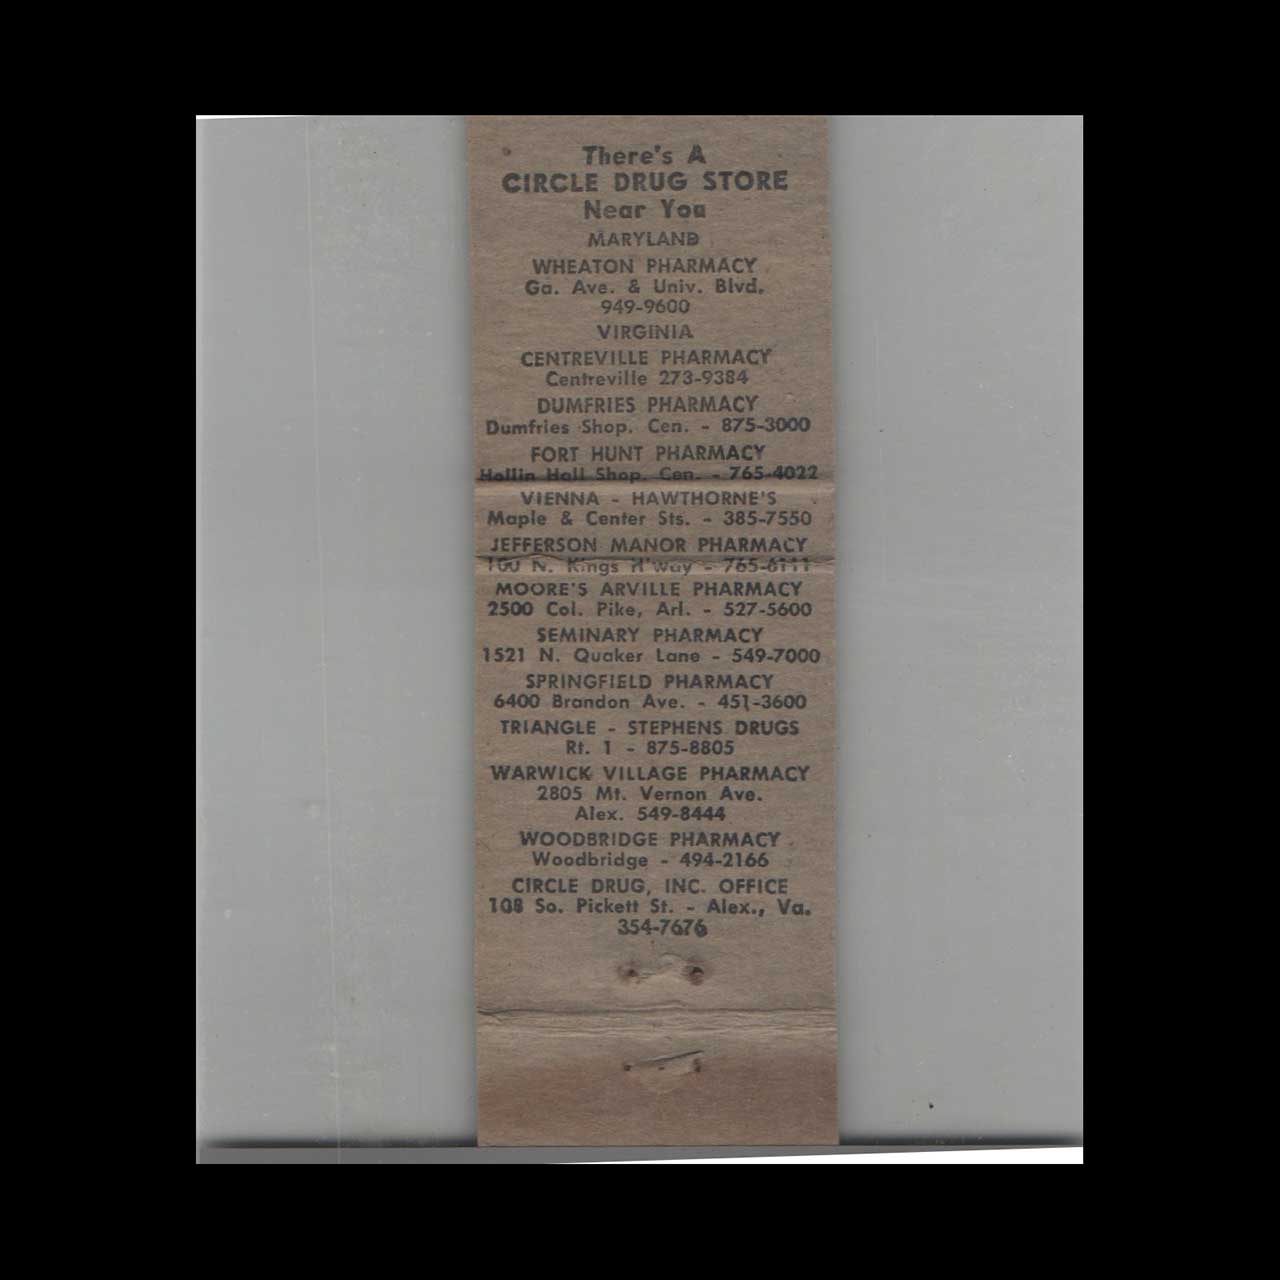 There's A
CIRCLE DRUG STORE
Near You
MARYLAND
WHEATON PHARMACY
Ga. Ave. & Univ. Blvd.
949-9600
VIRGINIA
CENTREVILLE PHARMACY
Centreville 273-9384
DUMFRIES PHARMACY
Dumfries Shop. Cen. - 875-3000
FORT HUNT PHARMACY
Hollin Hall Shop. Cen. - 765-4022
VIENNA - HAWTHORNE'S
Maple & Center Sts. - 385-7550
JEFFERSON MANOR PHARMACY
100 N. Kings H'way - 765-6111
MOORE'S ARVILLE PHARMACY
2500 Col. Pike, Arl. - 527-5600
SEMINARY PHARMACY
1521 N. Quaker Lane - 549-7000
SPRINGFIELD PHARMACY
6400 Brandon Ave. - 451-3600
TRIANGLE - STEPHENS DRUGS
Rt. 1 - 875-8805
WARWICK VILLAGE PHARMACY
2805 Mt. Vernon Ave.
Alex. 549-8444
WOODBRIDGE PHARMACY
Woodbridge - 494-2166
CIRCLE DRUG, INC. OFFICE
108 So. Pickett St. - Alex., Va.
354-7676